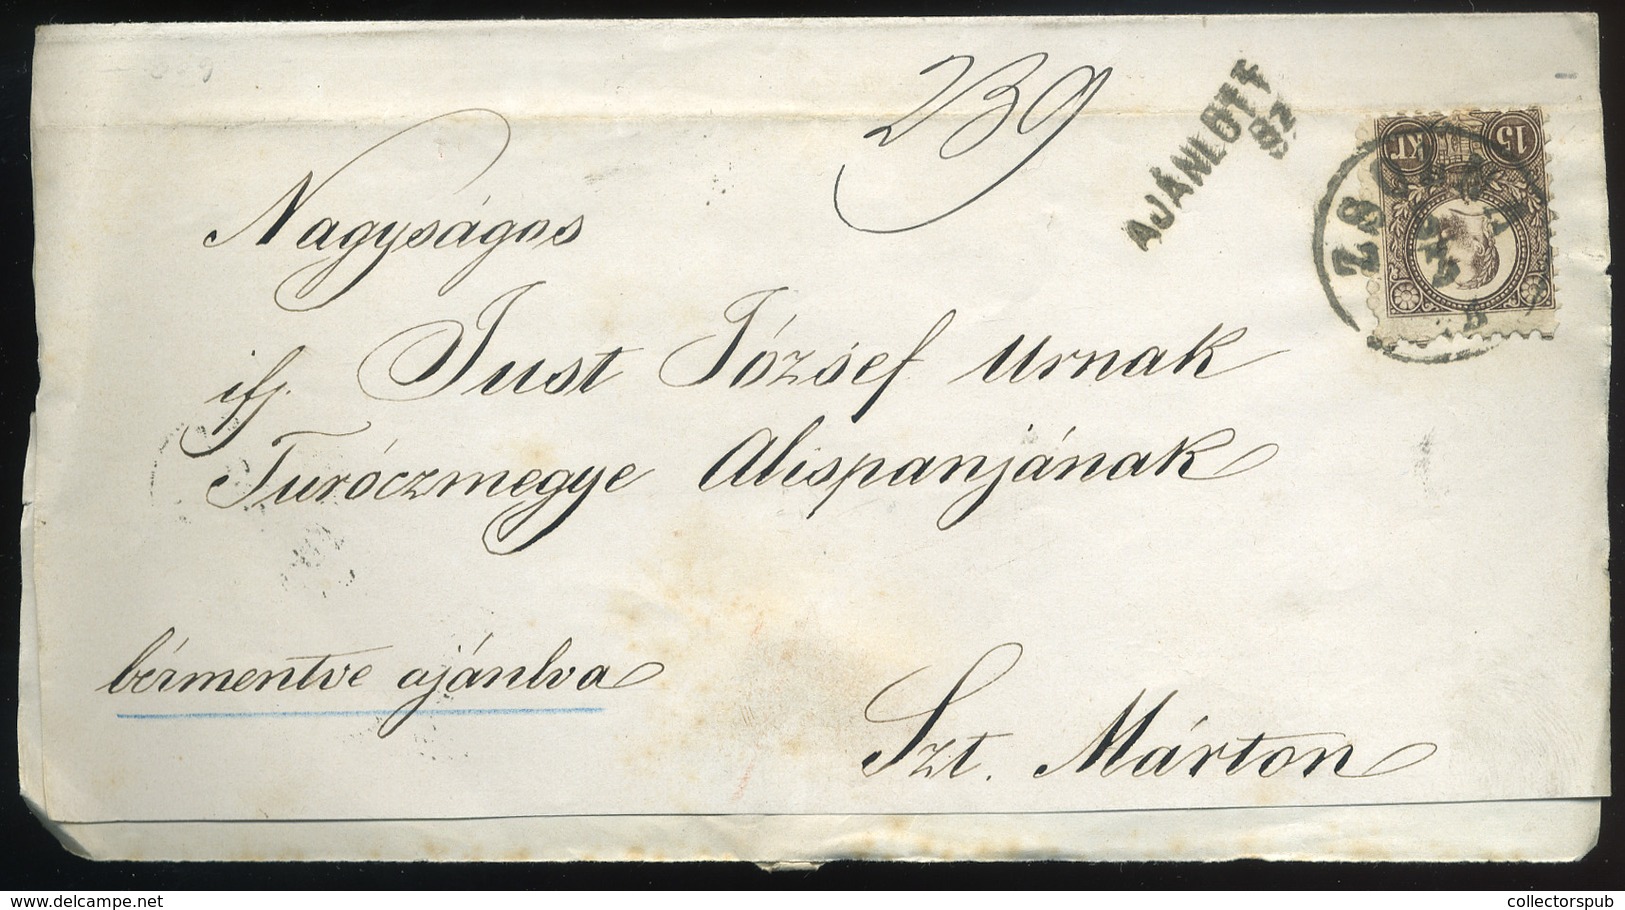 239
AJÁNLOTT
Nagyságos
ifj. Just József Urnak
Turóczmegye Alispanjának
bérmentve ajánlva
Szt. Márton
15
kr
collectorspub.com